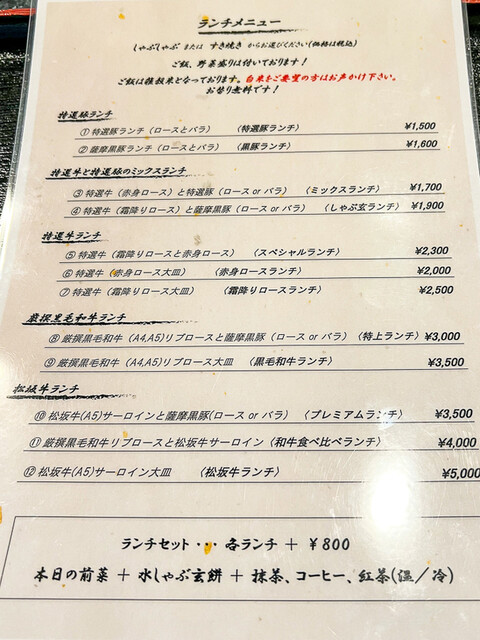 ランチメニュー
しゃぶしゃぶ または すき焼き からお選びください(価格は税込)
ご飯、野菜盛りは付いております!
ご飯は雑穀米となっております。白米をご要望の方はお声かけ下さい。
お替り無料です!
特選豚ランチ
①特選豚ランチ(ロースとバラ) (特選豚ランチ) ¥1,500
②薩摩黒豚ランチ(ロースとバラ) (黒豚ランチ) ¥1,600
特選牛と特選豚のミックスランチ
③特選牛(赤身ロース)と特選豚(ロース or バラ) (ミックスランチ) ¥1,700
④特選牛(霜降りロース)と薩摩黒豚(ロース or バラ) (しゃぶ玄ランチ) ¥1,900
特選牛ランチ
⑤特選牛(霜降りロースと赤身ロース) (スペシャルランチ) ¥2,300
⑥特選牛(赤身ロース大皿) (赤身ロースランチ) ¥2,000
⑦特選牛(霜降りロース大皿) (霜降りロースランチ) ¥2,500
厳撰黒毛和牛ランチ
⑧厳撰黒毛和牛(A4,A5)リブロースと薩摩黒豚(ロース or バラ)(特上ランチ) ¥3,000
⑨厳撰黒毛和牛(A4,A5)リブロース大皿 (黒毛和牛ランチ) ¥3,500
松坂牛ランチ
⑩松坂牛(A5)サーロインと薩摩黒豚(ロース or バラ) (プレミアムランチ) ¥3,500
⑪厳撰黒毛和牛リブロースと松坂牛サーロイン(和牛食べ比べランチ) ¥4,000
⑫松坂牛(A5)サーロイン大皿 (松坂牛ランチ) ¥5,000
ランチセット・・・ 各ランチ + ¥800
本日の前菜 + 水しゃぶ玄餅 + 抹茶、コーヒー、紅茶(温/冷)